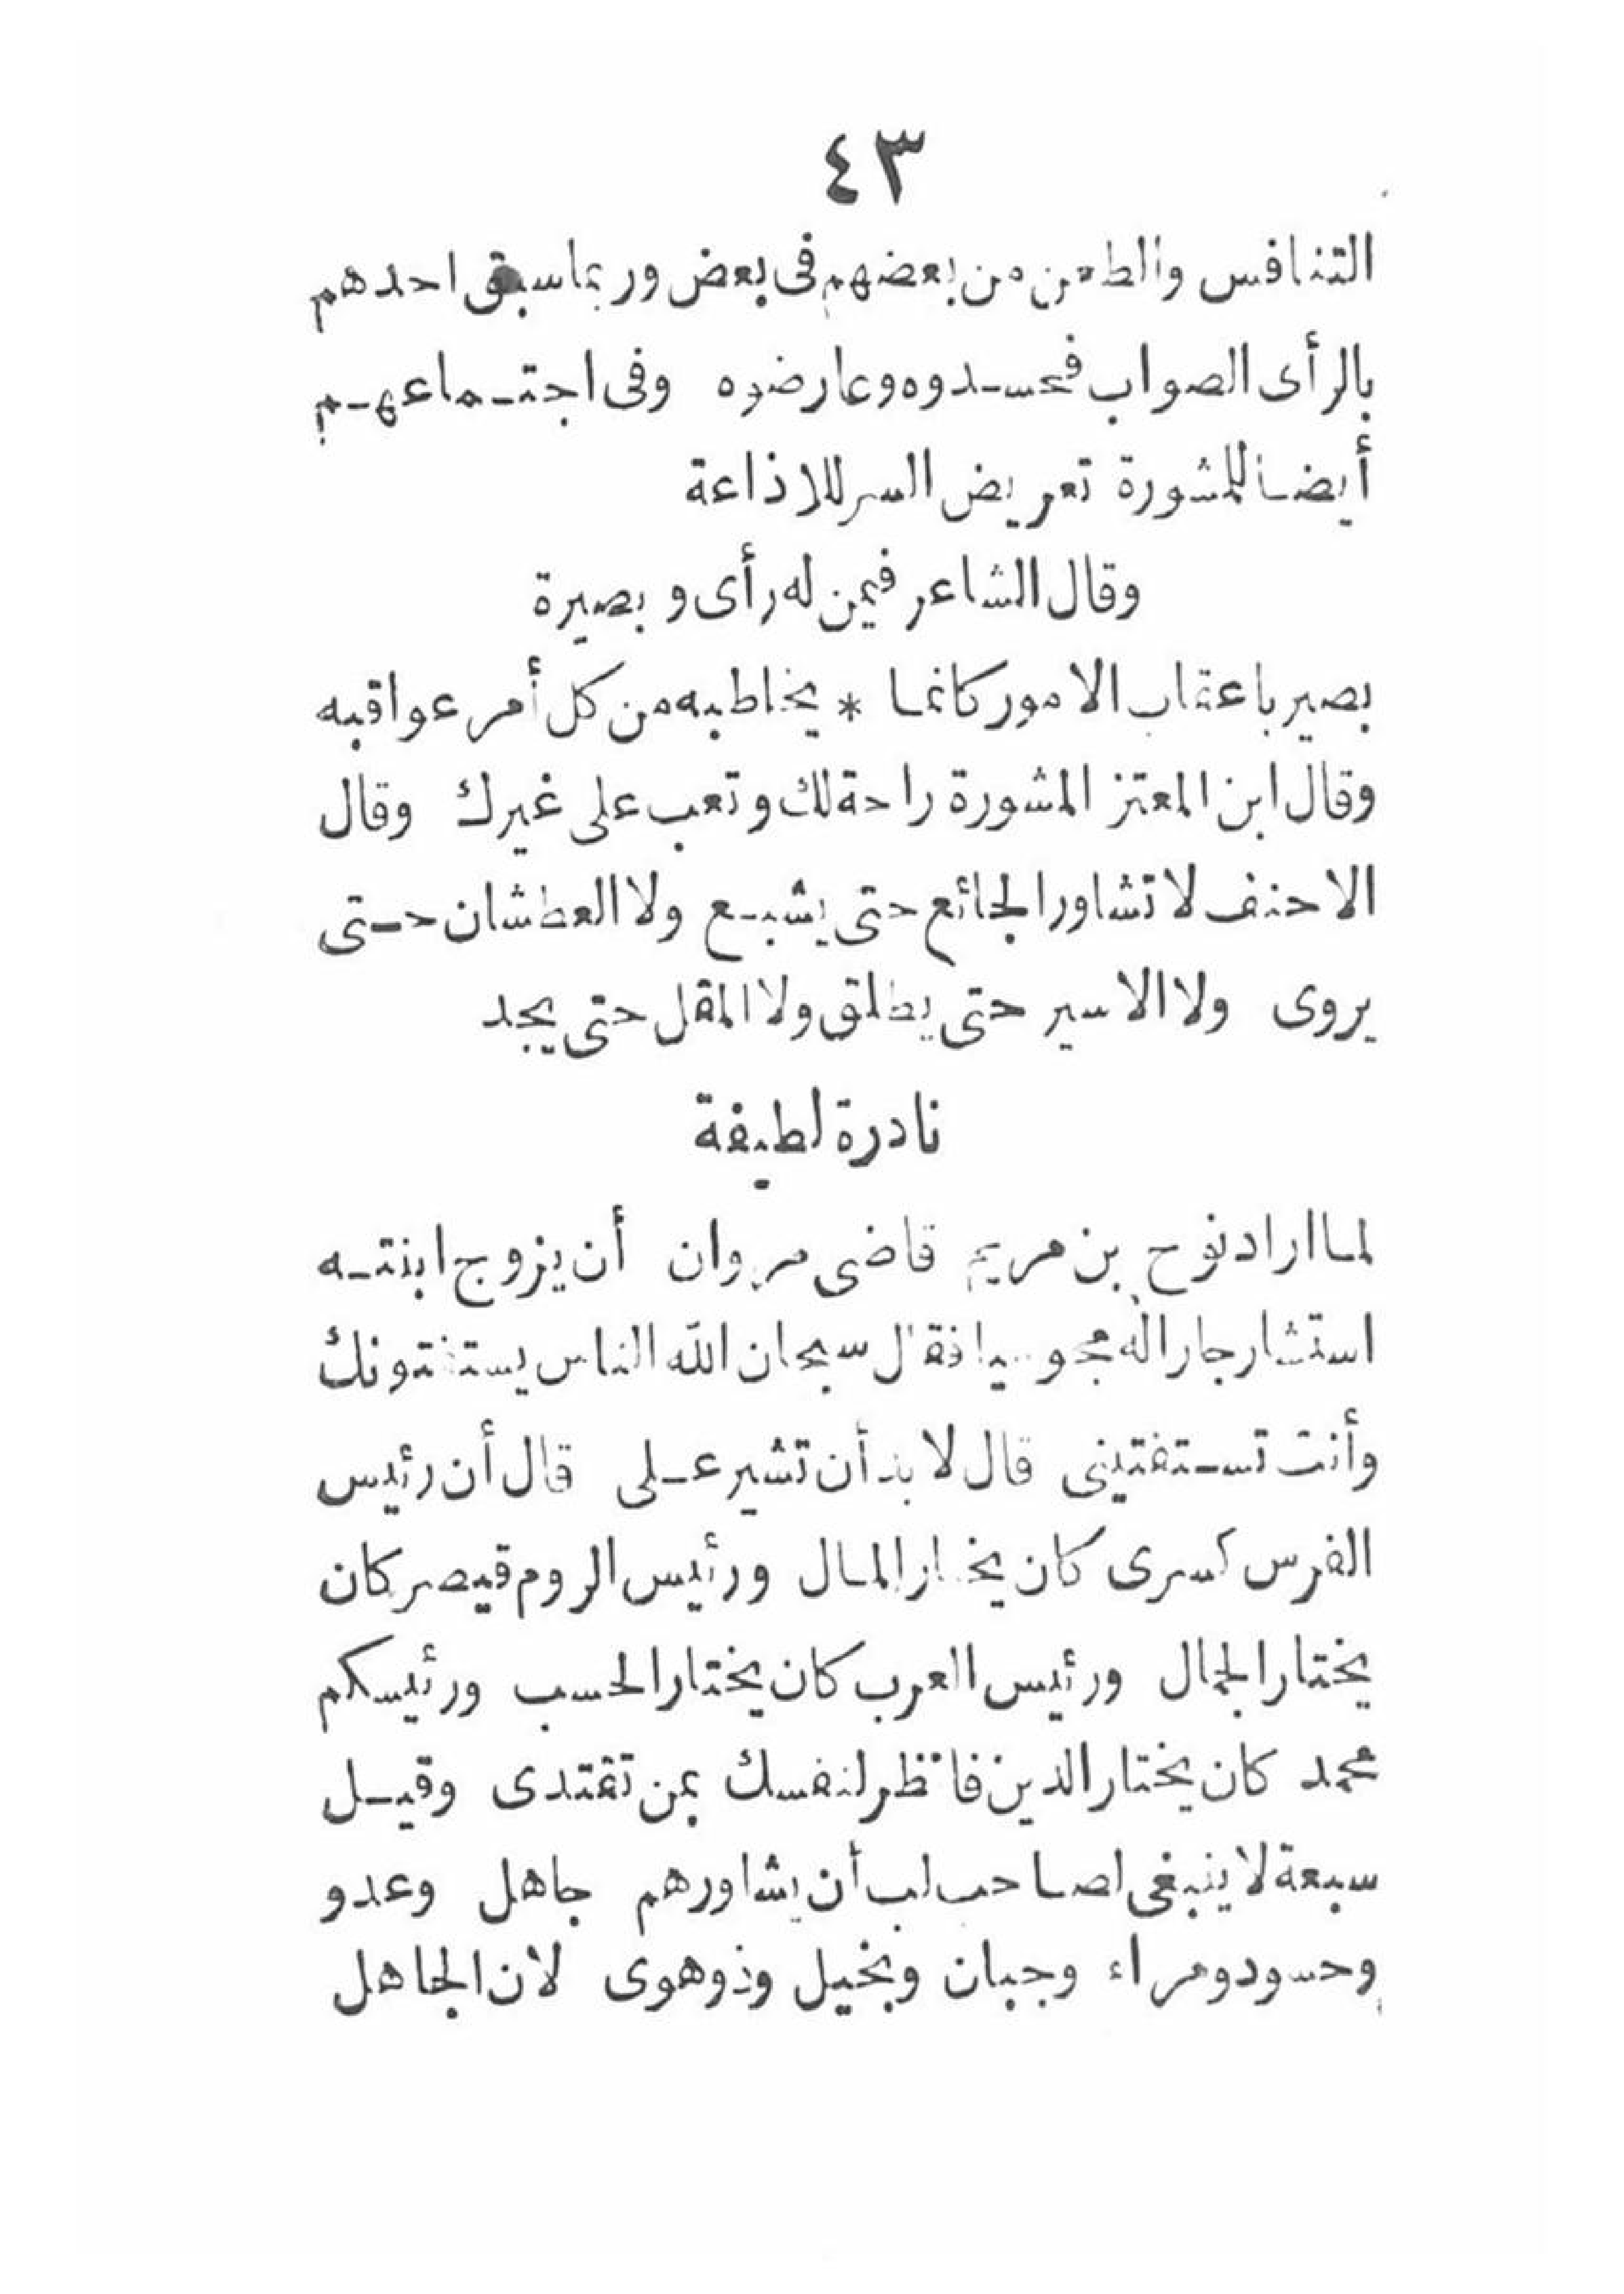 ٤٣
التنافس والطعن من بعضهم فى بعض وربما سبق احدهم
بالرأى الصواب فحسدوه وعارضوه وفى اجتماعهم
أيضا للمشورة تعريض السر للاذاعة
وقال الشاعر فيمن له رأى وبصيرة
بصير باعقاب الامور كانما * يخاطبه من كل أمر عواقبه
وقال ابن المعتز المشورة راحة لك وتعب على غيرك وقال
الاحنف لا تشاور الجائع حتى يشبع ولا العطشان حتى
يروى ولا الاسير حتى يطلق ولا المقل حتى يجد
نادرة لطيفة
لما اراد نوح بن مريم قاضى مروان أن يزوج ابنته
استشار جارا له مجوسيا فقال سبحان الله الناس يستفتونك
وأنت تستفتينى قال لا بد أن تشير على قال أن رئيس
الفرس كسرى كان يختار المال ورئيس الروم قيصر كان
يختار الجمال ورئيس العرب كان يختار الحسب ورئيسكم
محمد كان يختار الدين فانظر لنفسك بمن تقتدى وقيل
سبعة لا ينبغى لصاحب لب أن يشاورهم جاهل وعدو
وحسود ومراء وجبان وبخيل وذو هوى لان الجاهل